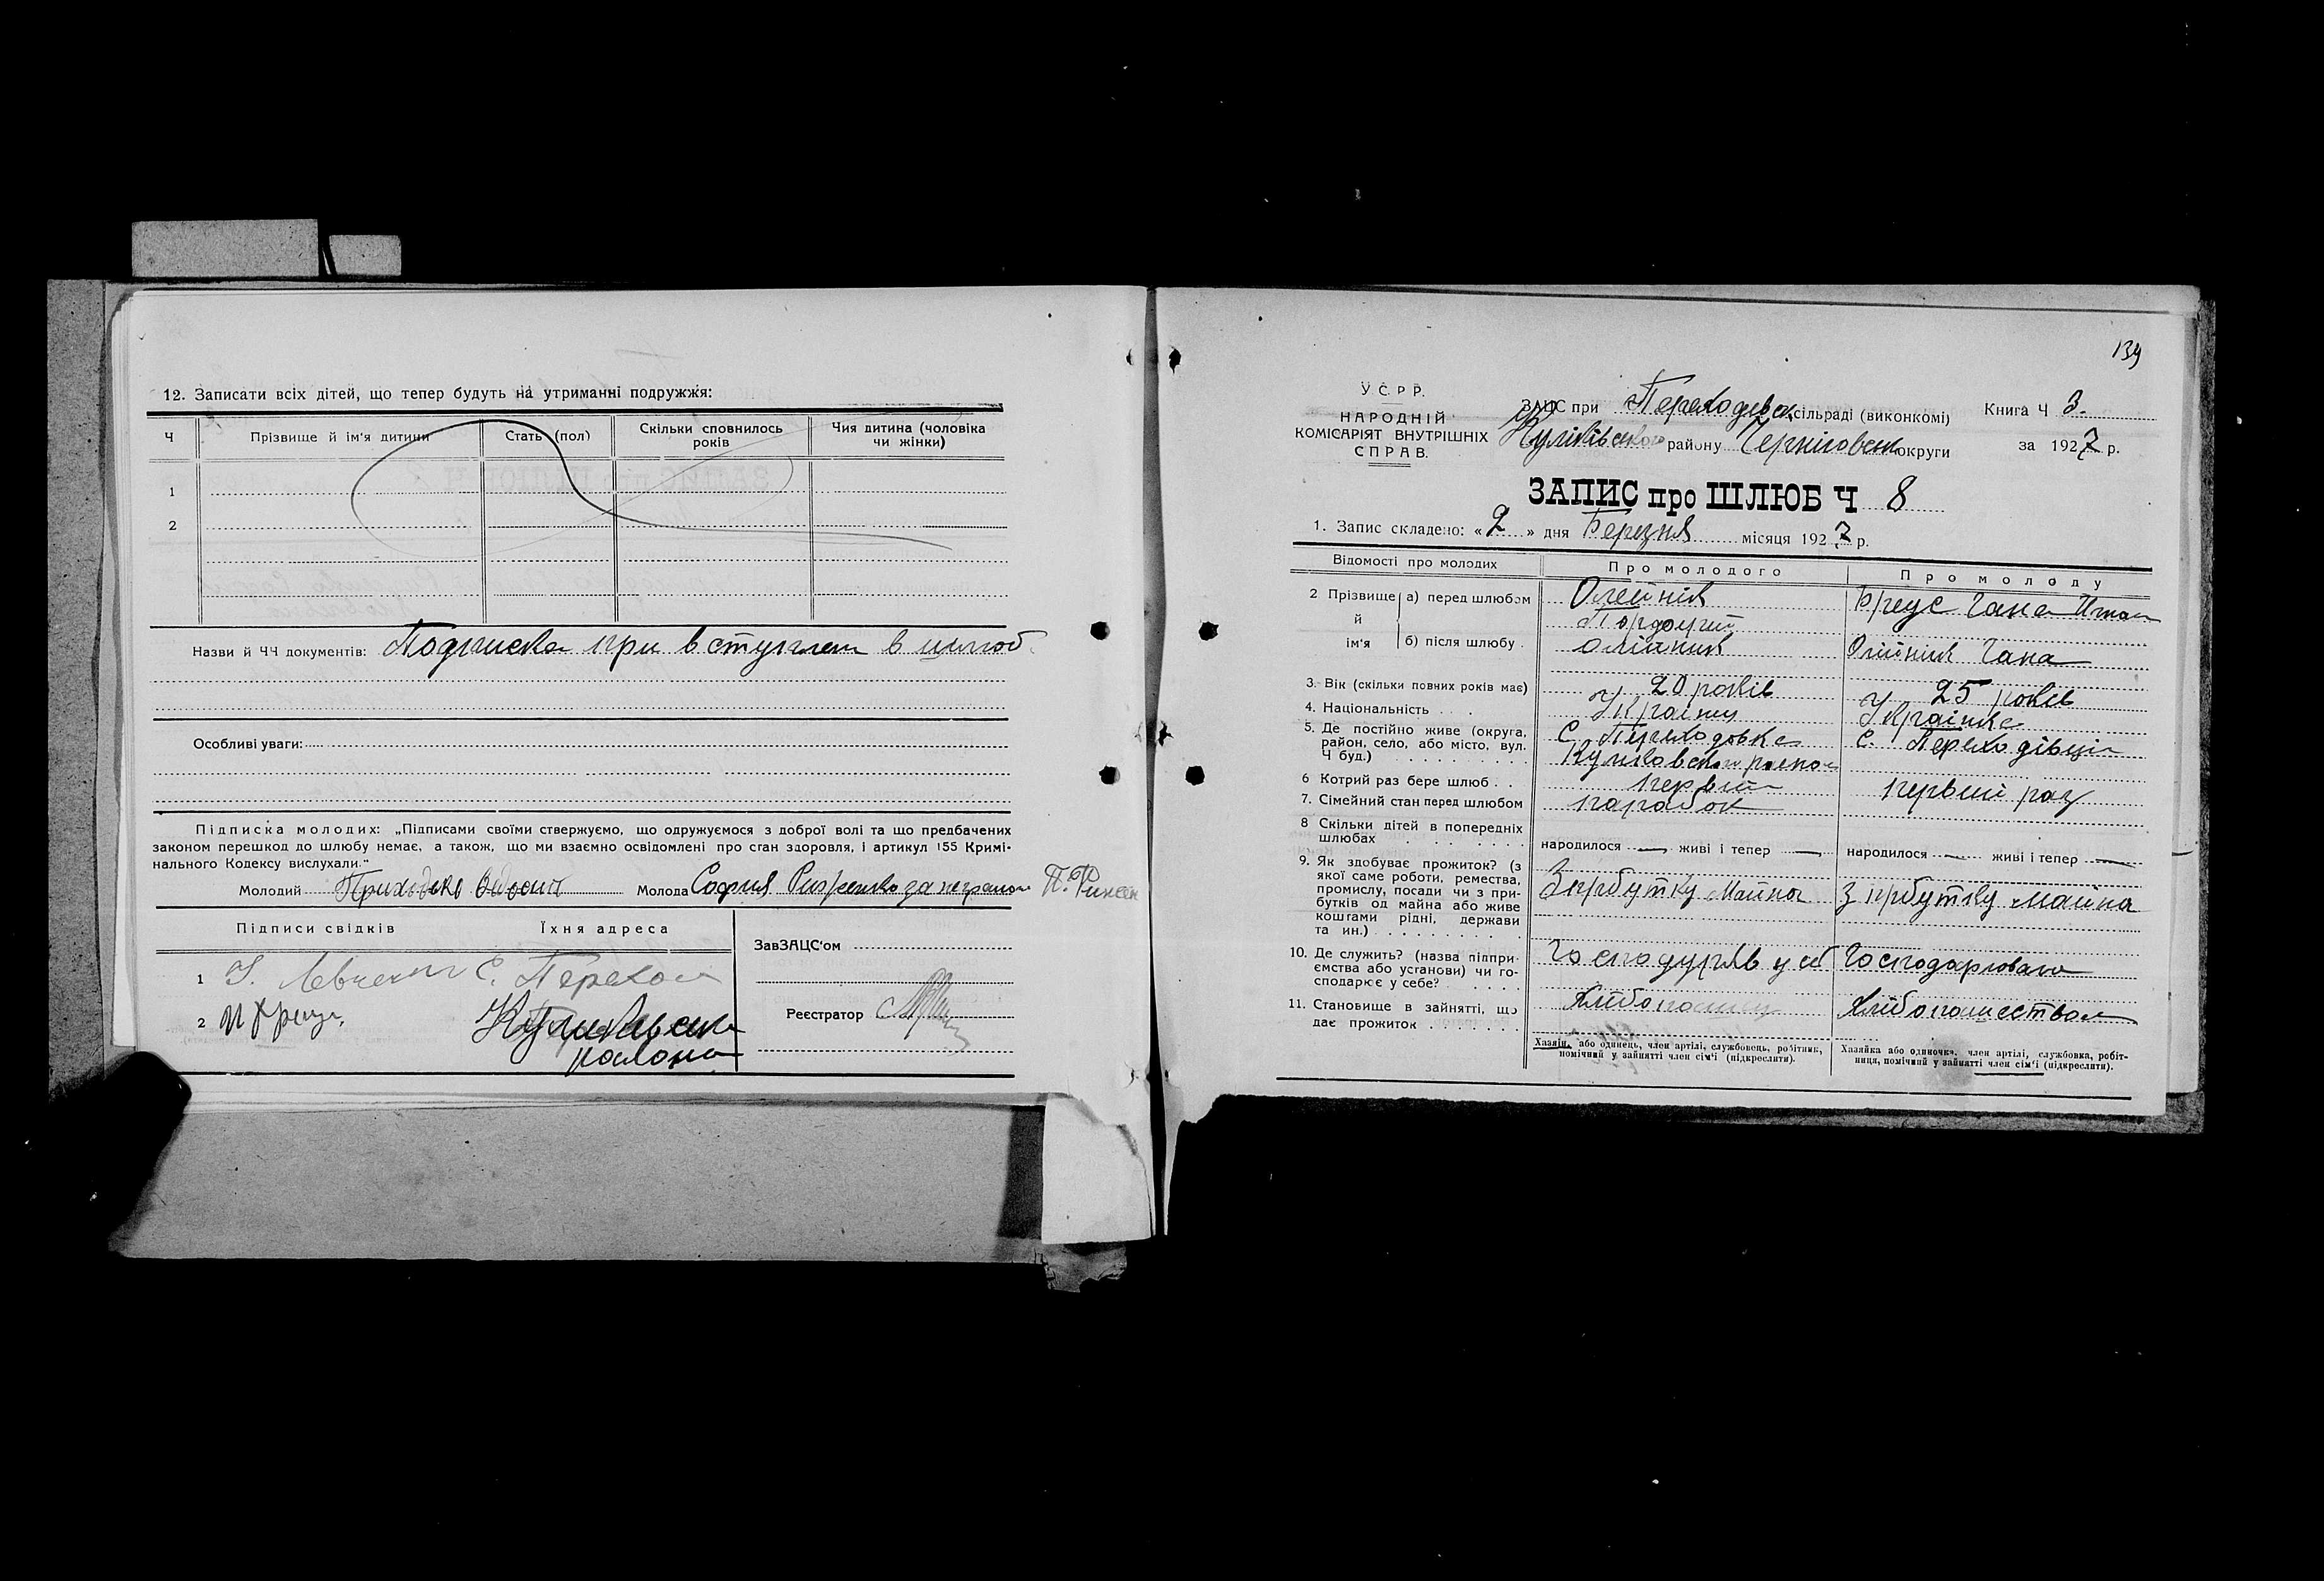 12. Записати всіх дітей, що тепер будуть на утриманні подружжя:
Ч Прізвище й ім'я дитини Стать (пол) Скільки сповнилось років Чия дитина (чоловіка чи жінки)
1
2
Назви й ЧЧ документів: Подписка при вступлен в шлюб
Особливі уваги:
Підписка молодих: „Підписами своїми стверджуємо, що одружуємося з доброї волі та що предбачених
законом перешкод до шлюбу немає, а також, що ми взаємно освідомлені про стан здоровля, і артикул 155 Кримі-
нального Кодексу вислухали."
Молодий Приходько Молода София
Підписи свідків Їхня адреса
ЗавЗАЦС'ом
1 С. Перехо
2 Куликовск
района
Реєстратор
139
У.С.Р.Р.
НАРОДНІЙ
КОМІСАРІЯТ ВНУТРІШНІХ
СПРАВ.
ЗАЦС при Переходівск сільраді (виконкомі)
Куликівського району Черніговськ округи
Книга Ч 3.
за 1927 р.
ЗАПИС про ШЛЮБ Ч 8
1. Запис складено: «2» дня Березня місяця 1927 р.
Відомості про молодих Про молодого Про молоду
2 Прізвище й ім'я а) перед шлюбом Олейник Бреус Гана
б) після шлюбу Олійник Олійник Гана
3. Вік (скільки повних років має) 20 років 25 років
4. Національність Українц Українка
5. Де постійно живе (округа, район, село, або місто, вул. Ч буд.) С. Переходовка С. Переходівці
Куликовского района
6 Котрий раз бере шлюб первий первий раз
7. Сімейний стан перед шлюбом парабок
8 Скільки дітей в попередніх шлюбах народилося — живі і тепер — народилося — живі і тепер —
9. Як здобуває прожиток? (з якої саме роботи, ремества, промислу, посади чи з прибутків од майна або живе коштами рідні, держави та ин.) З прбутку майна З прбутку майна
10. Де служить? (назва підприємства або установи) чи господарює у себе? у себ Господарювала
11. Становище в зайнятті, що дає прожиток Хлібопашец Хлібопашеством
Хазяїн, або одинець, член артілі, службовець, робітник, помічний у зайнятті член сім'ї (підкреслити).
Хазяйка або одиночка, член артілі, службовка, робітниця, помічний у зайнятті член сім'ї (підкреслити).